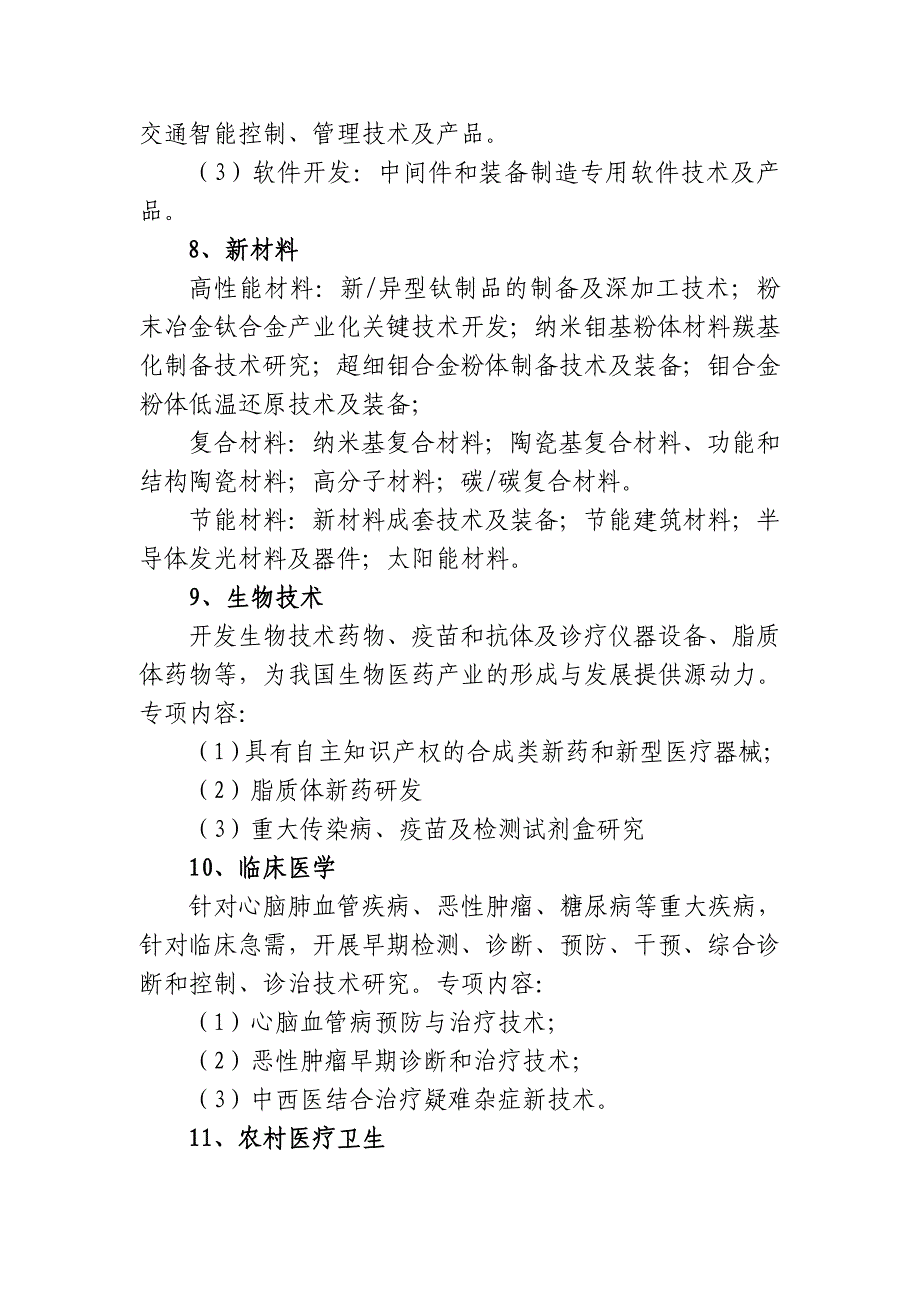 交通智能控制、管理技术及产品。
（3）软件开发：中间件和装备制造专用软件技术及产
品。
8、新材料
高性能材料：新/异型钛制品的制备及深加工技术；粉
末冶金钛合金产业化关键技术开发；纳米钼基粉体材料羰基
化制备技术研究；超细钼合金粉体制备技术及装备；钼合金
粉体低温还原技术及装备；
复合材料：纳米基复合材料；陶瓷基复合材料、功能和
结构陶瓷材料；高分子材料；碳/碳复合材料。
节能材料：新材料成套技术及装备；节能建筑材料；半
导体发光材料及器件；太阳能材料。
9、生物技术
开发生物技术药物、疫苗和抗体及诊疗仪器设备、脂质
体药物等，为我国生物医药产业的形成与发展提供源动力。
专项内容：
（1）具有自主知识产权的合成类新药和新型医疗器械；
（2）脂质体新药研发
（3）重大传染病、疫苗及检测试剂盒研究
10、临床医学
针对心脑肺血管疾病、恶性肿瘤、糖尿病等重大疾病，
针对临床急需，开展早期检测、诊断、预防、干预、综合诊
断和控制、诊治技术研究。专项内容：
（1）心脑血管病预防与治疗技术；
（2）恶性肿瘤早期诊断和治疗技术；
（3）中西医结合治疗疑难杂症新技术。
11、农村医疗卫生